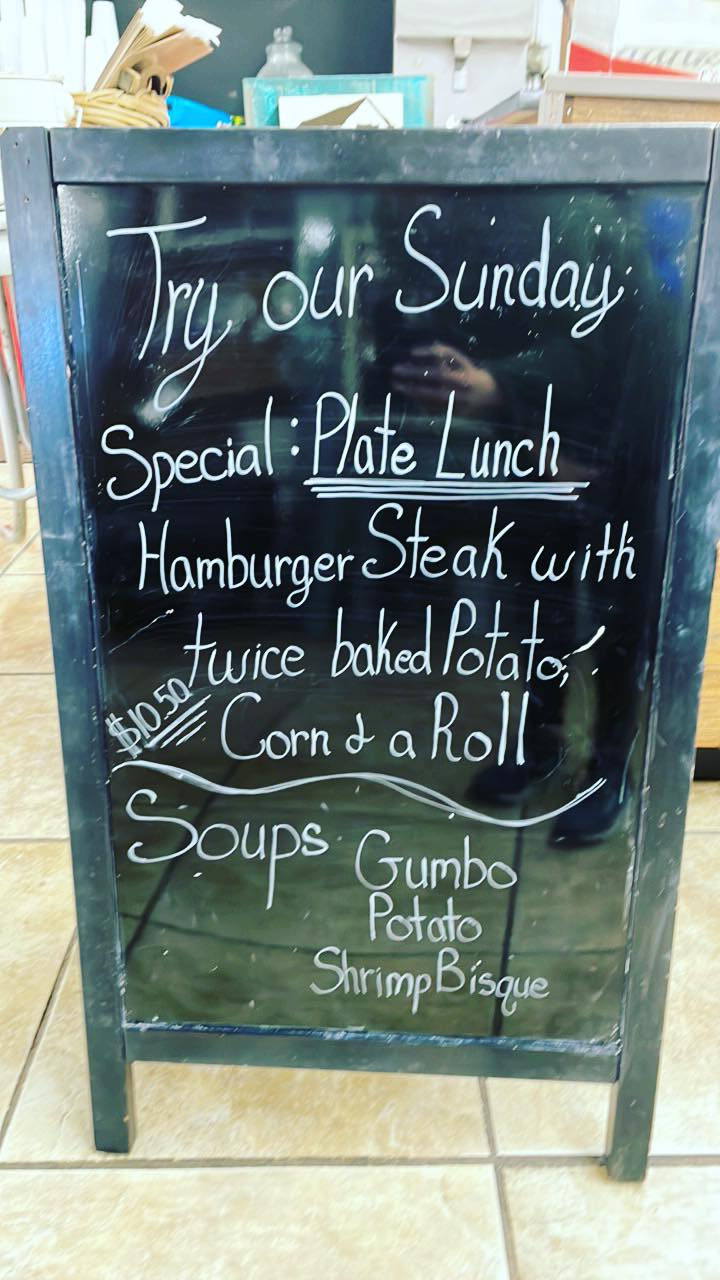 Try our Sunday
Special: Plate Lunch
Hamburger Steak with
twice baked Potato,
$10.50
Corn & a Roll
Soups
Gumbo
Potato
Shrimp Bisque